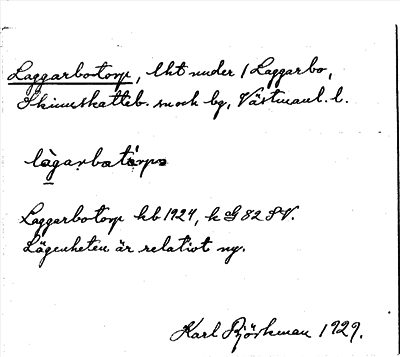 Laggarbotorp, lht under 1 Laggarbo,
Skinnskatteb. sn och bg, Västmanl. l.
làgarbatórpə
Laggarbotorp kb 1924, k og 82 SV.
Lägenheten är relativt ny.
Karl Björkman 1929.